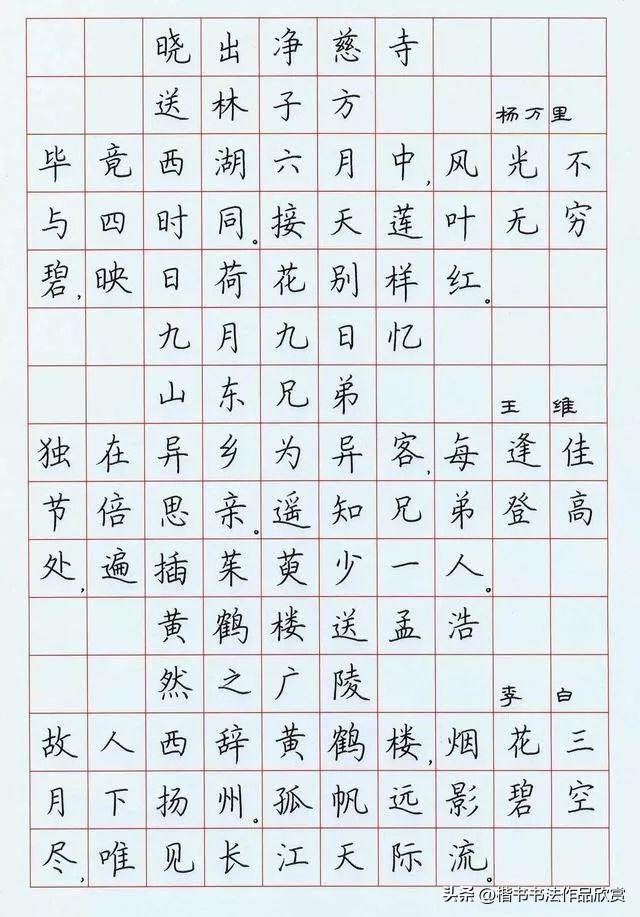 晓出净慈寺
送林子方 杨万里
毕竟西湖六月中,风光不
与四时同。接天莲叶无穷
碧,映日荷花别样红。
九月九日忆
山东兄弟 王维
独在异乡为异客,每逢佳
节倍思亲。遥知兄弟登高
处,遍插茱萸少一人。
黄鹤楼送孟浩
然之广陵 李白
故人西辞黄鹤楼,烟花三
月下扬州。孤帆远影碧空
尽,唯见长江天际流。
头条@楷书书法作品欣赏